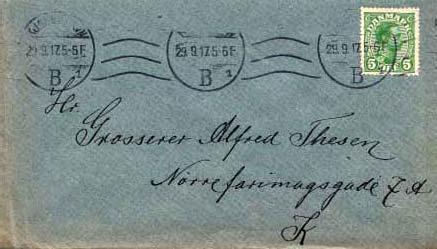 29.9.17.5-6E 29.9.17.5-6E 29.9.17.5-6E
B 1 B 1 B
DANMARK
5 5
Hr.
Grosserer Alfred Thesen
Nørrefarimagsgade 7 A
K